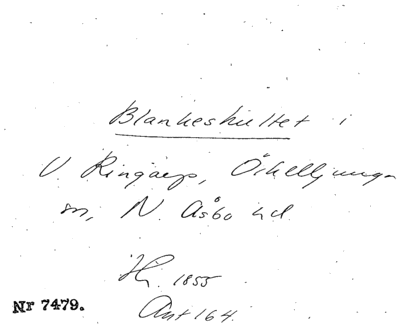 Blankeshultet i
V. Ringarp, Örkelljunga
sn, N. Åsbo hd.
1855
Ant 164.
Nr 7479.